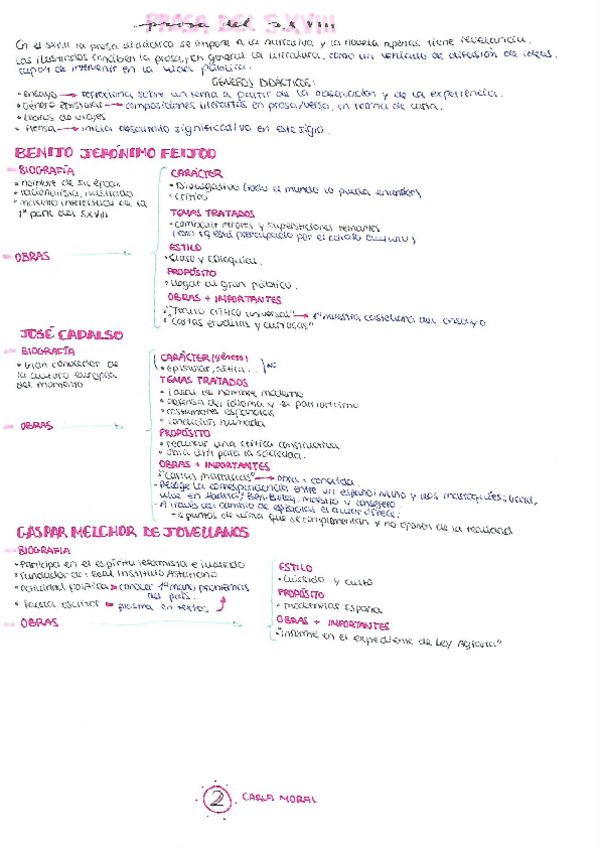 PROSA DEL S.XVIII
prosa del S.XVIII
En el s.XVIII la prosa didáctica se impone a la narrativa y la novela apenas tiene relevancia.
Los ilustrados conciben la prosa, y en general la literatura, como un vehículo de difusión de ideas,
capaz de intervenir en la vida pública.
GÉNEROS DIDÁCTICOS:
• Ensayo → reflexiona sobre un tema a partir de la observación y de la experiencia.
• Género epistolar → composiciones literarias en prosa/verso, en forma de carta.
• Libros de viajes
• Prensa → inicia desarrollo significativo en este siglo.
BENITO JERÓNIMO FEIJOO
BIOGRAFÍA
• hombre de su época
• racionalista, ilustrado
• máximo intelectual de la
1ª parte del s.XVIII
OBRAS →
CARÁCTER
• Divulgativo (todo el mundo lo pueda entender)
• Crítico
TEMAS TRATADOS
• combatir errores y supersticiones
(esto xq está preocupado por el retraso cultural)
ESTILO
• Claro y coloquial.
PROPÓSITO
• llegar al gran público.
OBRAS + IMPORTANTES
• "Teatro crítico universal" → 1ª muestra castellana del ensayo
• "Cartas eruditas y curiosas"
JOSÉ CADALSO
BIOGRAFÍA
• Gran conocedor de
la cultura europea
del momento
OBRAS →
CARÁCTER (género)
• epistolar, sátira...
TEMAS TRATADOS
• ideal de hombre moderno
• defensa del idioma y el patriotismo
• costumbres españolas
• condición humana
PROPÓSITO
• realizar una crítica constructiva
• obra útil para la sociedad.
OBRAS + IMPORTANTES
"Cartas marruecas" → obra + conocida.
- Recoge la correspondencia entre un español: Nuño y dos marroquíes: Gazel,
vive en Ben-Beley, maestro y consejero
- A través del cambio de epístolas el autor ofrece:
puntos de vista que se complementan y no oponen de la realidad
GASPAR MELCHOR DE JOVELLANOS
BIOGRAFÍA
• Participa en el espíritu reformista e ilustrado
• Fundador de: Real Instituto Asturiano
• Actividad política → conocer 1ª mano problemas
del país.
• Faceta escritor → plasma en textos.
OBRAS →
ESTILO
• Cuidado y culto
PROPÓSITO
• modernizar España
OBRAS + IMPORTANTES
• "Informe en el expediente de Ley Agraria"
2 CARLA MORAL